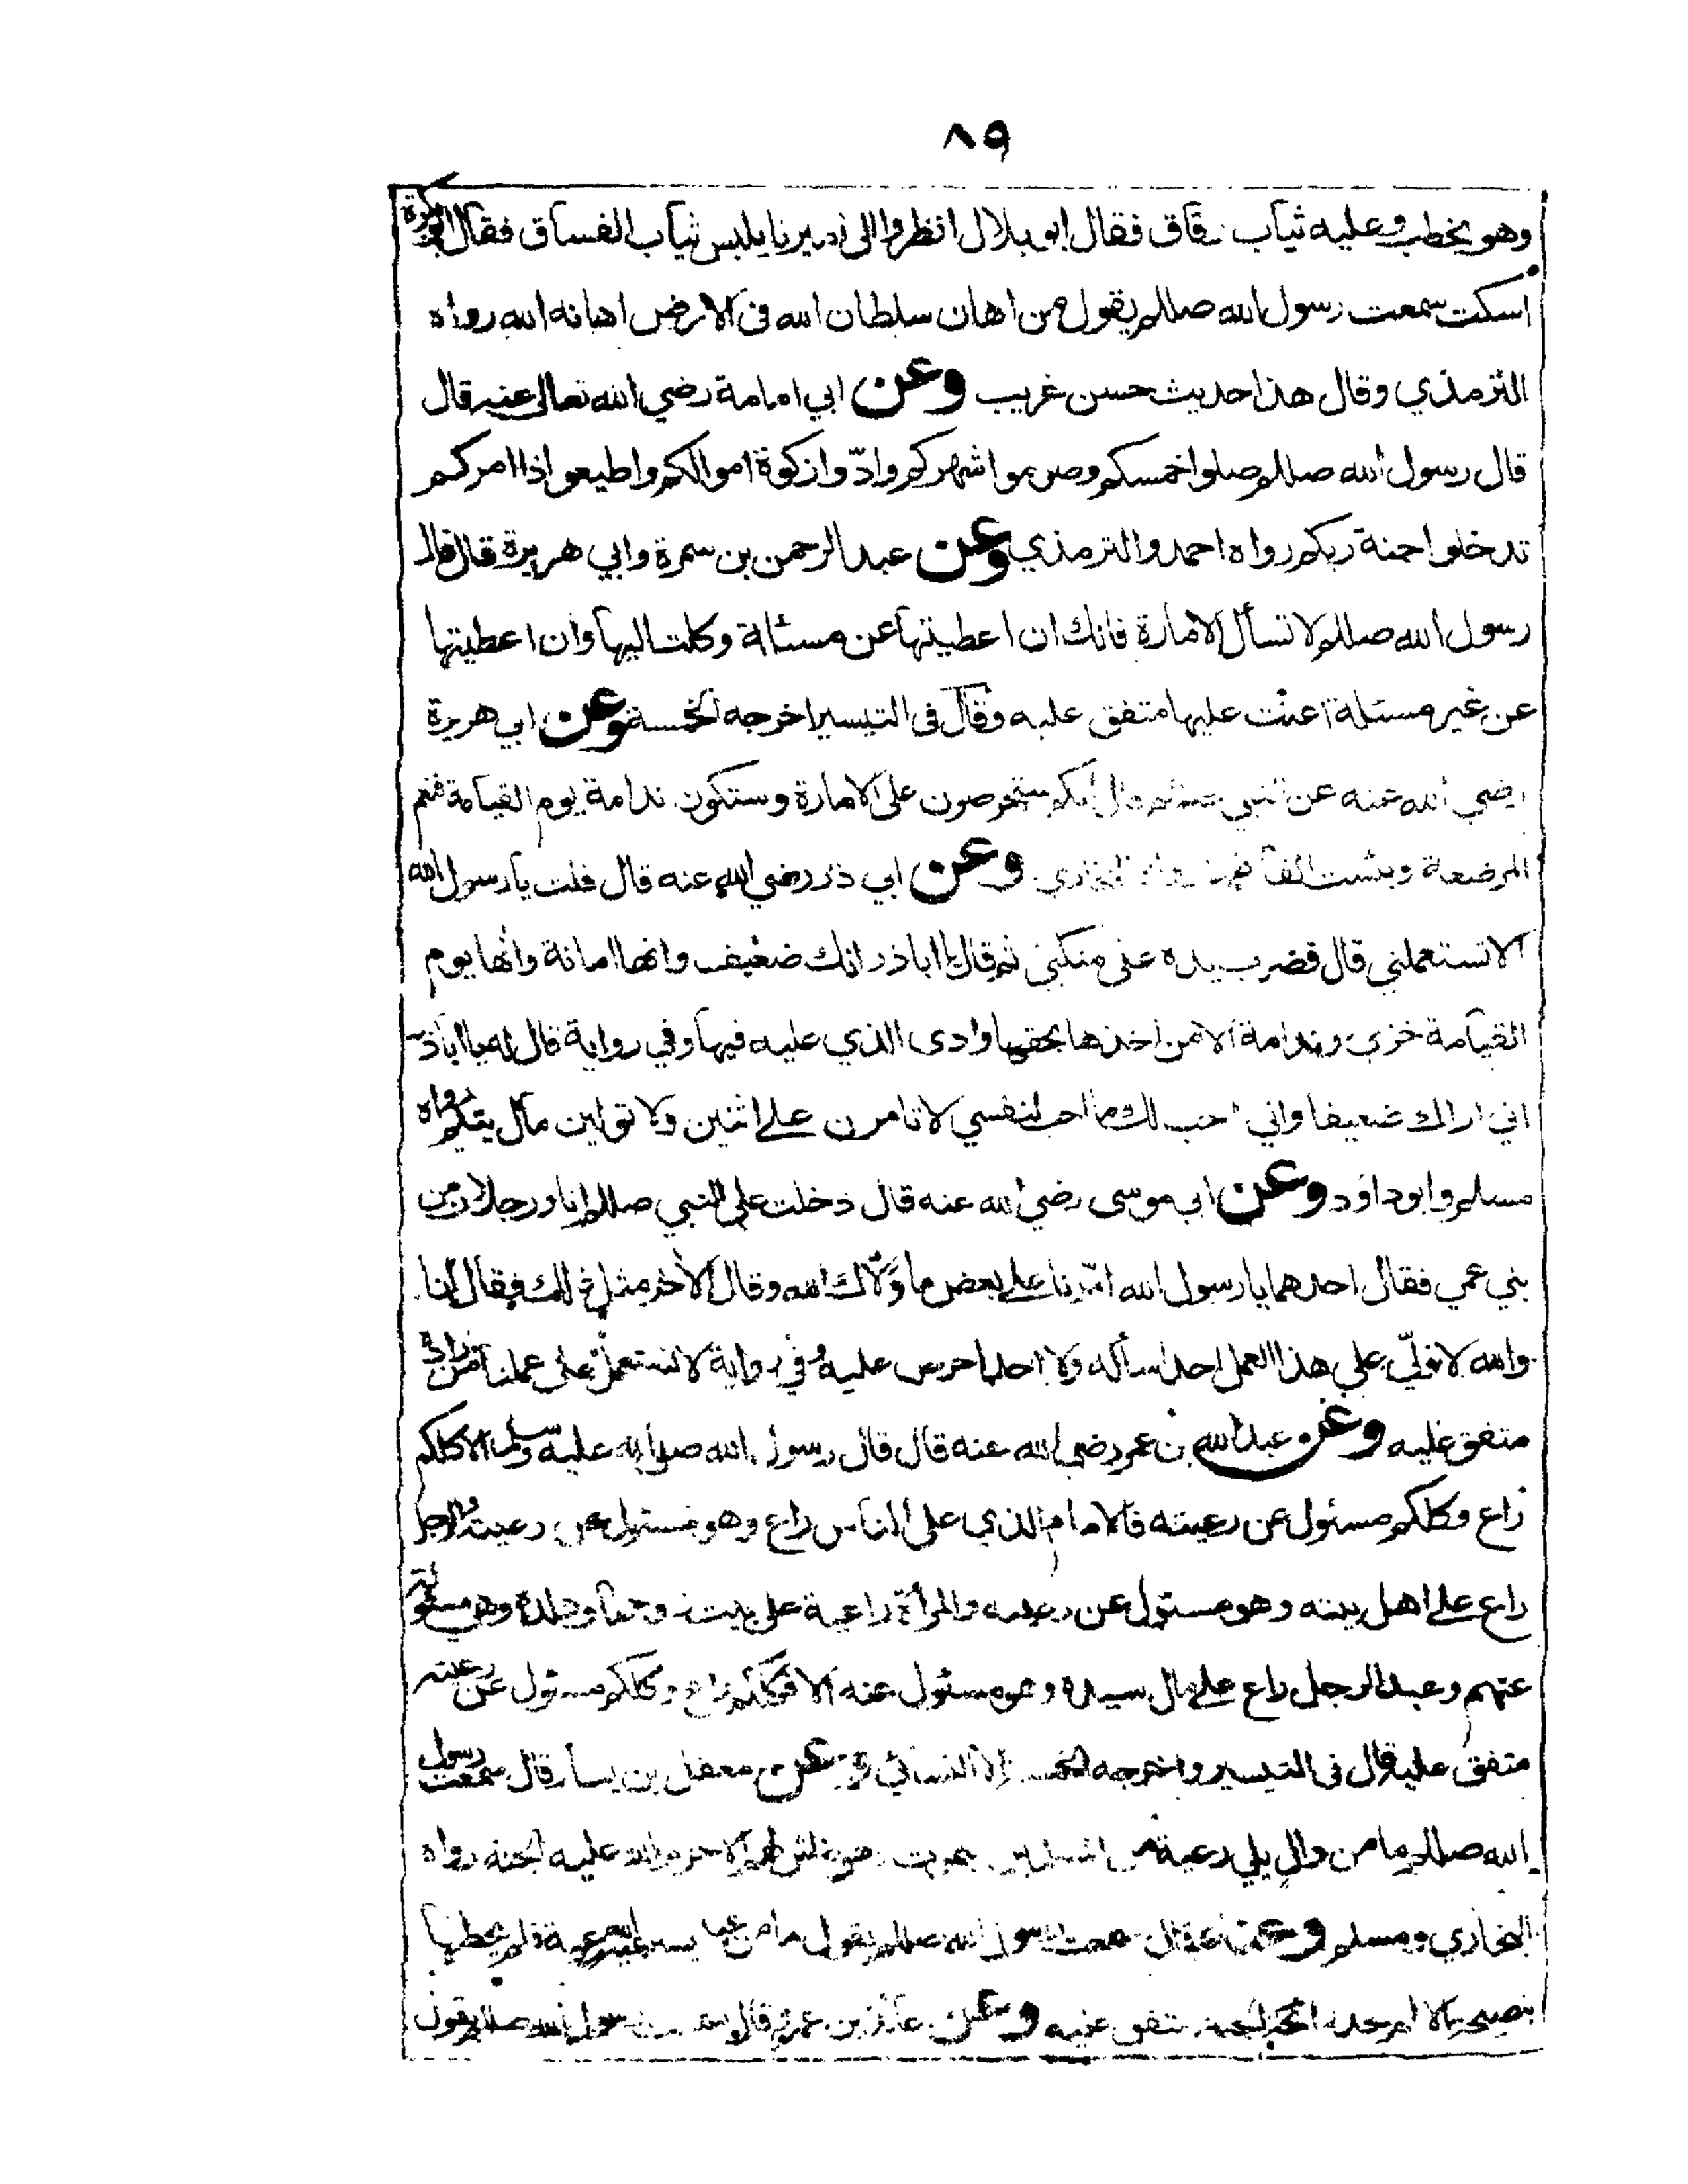 ٨٩
وهو يخطب وعليه ثياب رقاق فقال ابو بلال انظروا الى اميرنا يلبس ثياب الفساق فقال ابو بكرة
اسكت سمعت رسول الله صللم يقول من اهان سلطان الله فى الارض اهانه الله رواه
الترمذي وقال هذا حديث حسن غريب وعن ابي امامة رضي الله تعالى عنه قال
قال رسول الله صللم صلوا خمسكم وصوموا شهركم وادّوا زكوة اموالكم واطيعوا اذا امركم
تدخلوا جنة ربكم رواه احمد والترمذي وعن عبد الرحمن بن سمرة وابي هريرة قال قال
رسول الله صللم لا تسأل الامارة فانك ان اعطيتها عن مسئالة وكلت اليها وان اعطيتها
عن غير مسئلة اعنت عليها متفق عليه وقال فى التيسير اخرجه الخمسة وعن ابي هريرة
رضي الله عنه عن النبي صللم قال انكم ستحرصون على الامارة وستكون ندامة يوم القيامة فنعم
المرضعة وبئست الفاطمة رواه البخاري وعن ابي ذر رضي الله عنه قال قلت يا رسول الله
الا تستعملني قال فضرب بيده على منكبي ثم قال يا اباذر انك ضعيف وانها امانة وانها يوم
القيامة خزي وندامة الا من اخذها بحقها وادى الذي عليه فيها وفي رواية قال له يا اباذر
اني اراك ضعيفا واني احب لك ما احب لنفسي لا تامرن على اثنين ولا تولين مال يتيم رواه
مسلم وابو داود وعن ابي موسى رضي الله عنه قال دخلت على النبي صللم انا ورجلان من
بني عمي فقال احدهما يا رسول الله امّرنا على بعض ما ولّاك الله وقال الآخر مثل ذلك فقال انا
والله لا نولّي على هذا العمل احدا سأله ولا احدا حرص عليه وفي رواية لا نستعمل على عملنا من اراده
متفق عليه وعن عبد الله بن عمر رضي الله عنه قال قال رسول الله صلى الله عليه وسلم الا كلكم
راع وكلكم مسئول عن رعيته فالامام الذي على الناس راع وهو مسئول عن رعيته والرجل
راع على اهل بيته وهو مسئول عن رعيته والمرأة راعية على بيت زوجها وولده وهي مسئولة
عنهم وعبد الرجل راع على مال سيده وهو مسئول عنه الا فكلكم راع وكلكم مسئول عن رعيته
متفق عليه قال فى التيسير واخرجه الخمسة الا النسائي وعن معقل بن يسار قال سمعت رسول
الله صللم ما من وال يلي رعية من المسلمين يموت وهو غاش لهم الا حرم الله عليه الجنة رواه
البخاري ومسلم وعنه قال سمعت رسول الله صللم يقول ما من عبد يسترعيه الله رعية فلم يحطها
بنصيحة الا لم يجد رائحة الجنة متفق عليه وعن عائذ بن عمرو قال سمعت رسول الله صللم يقول